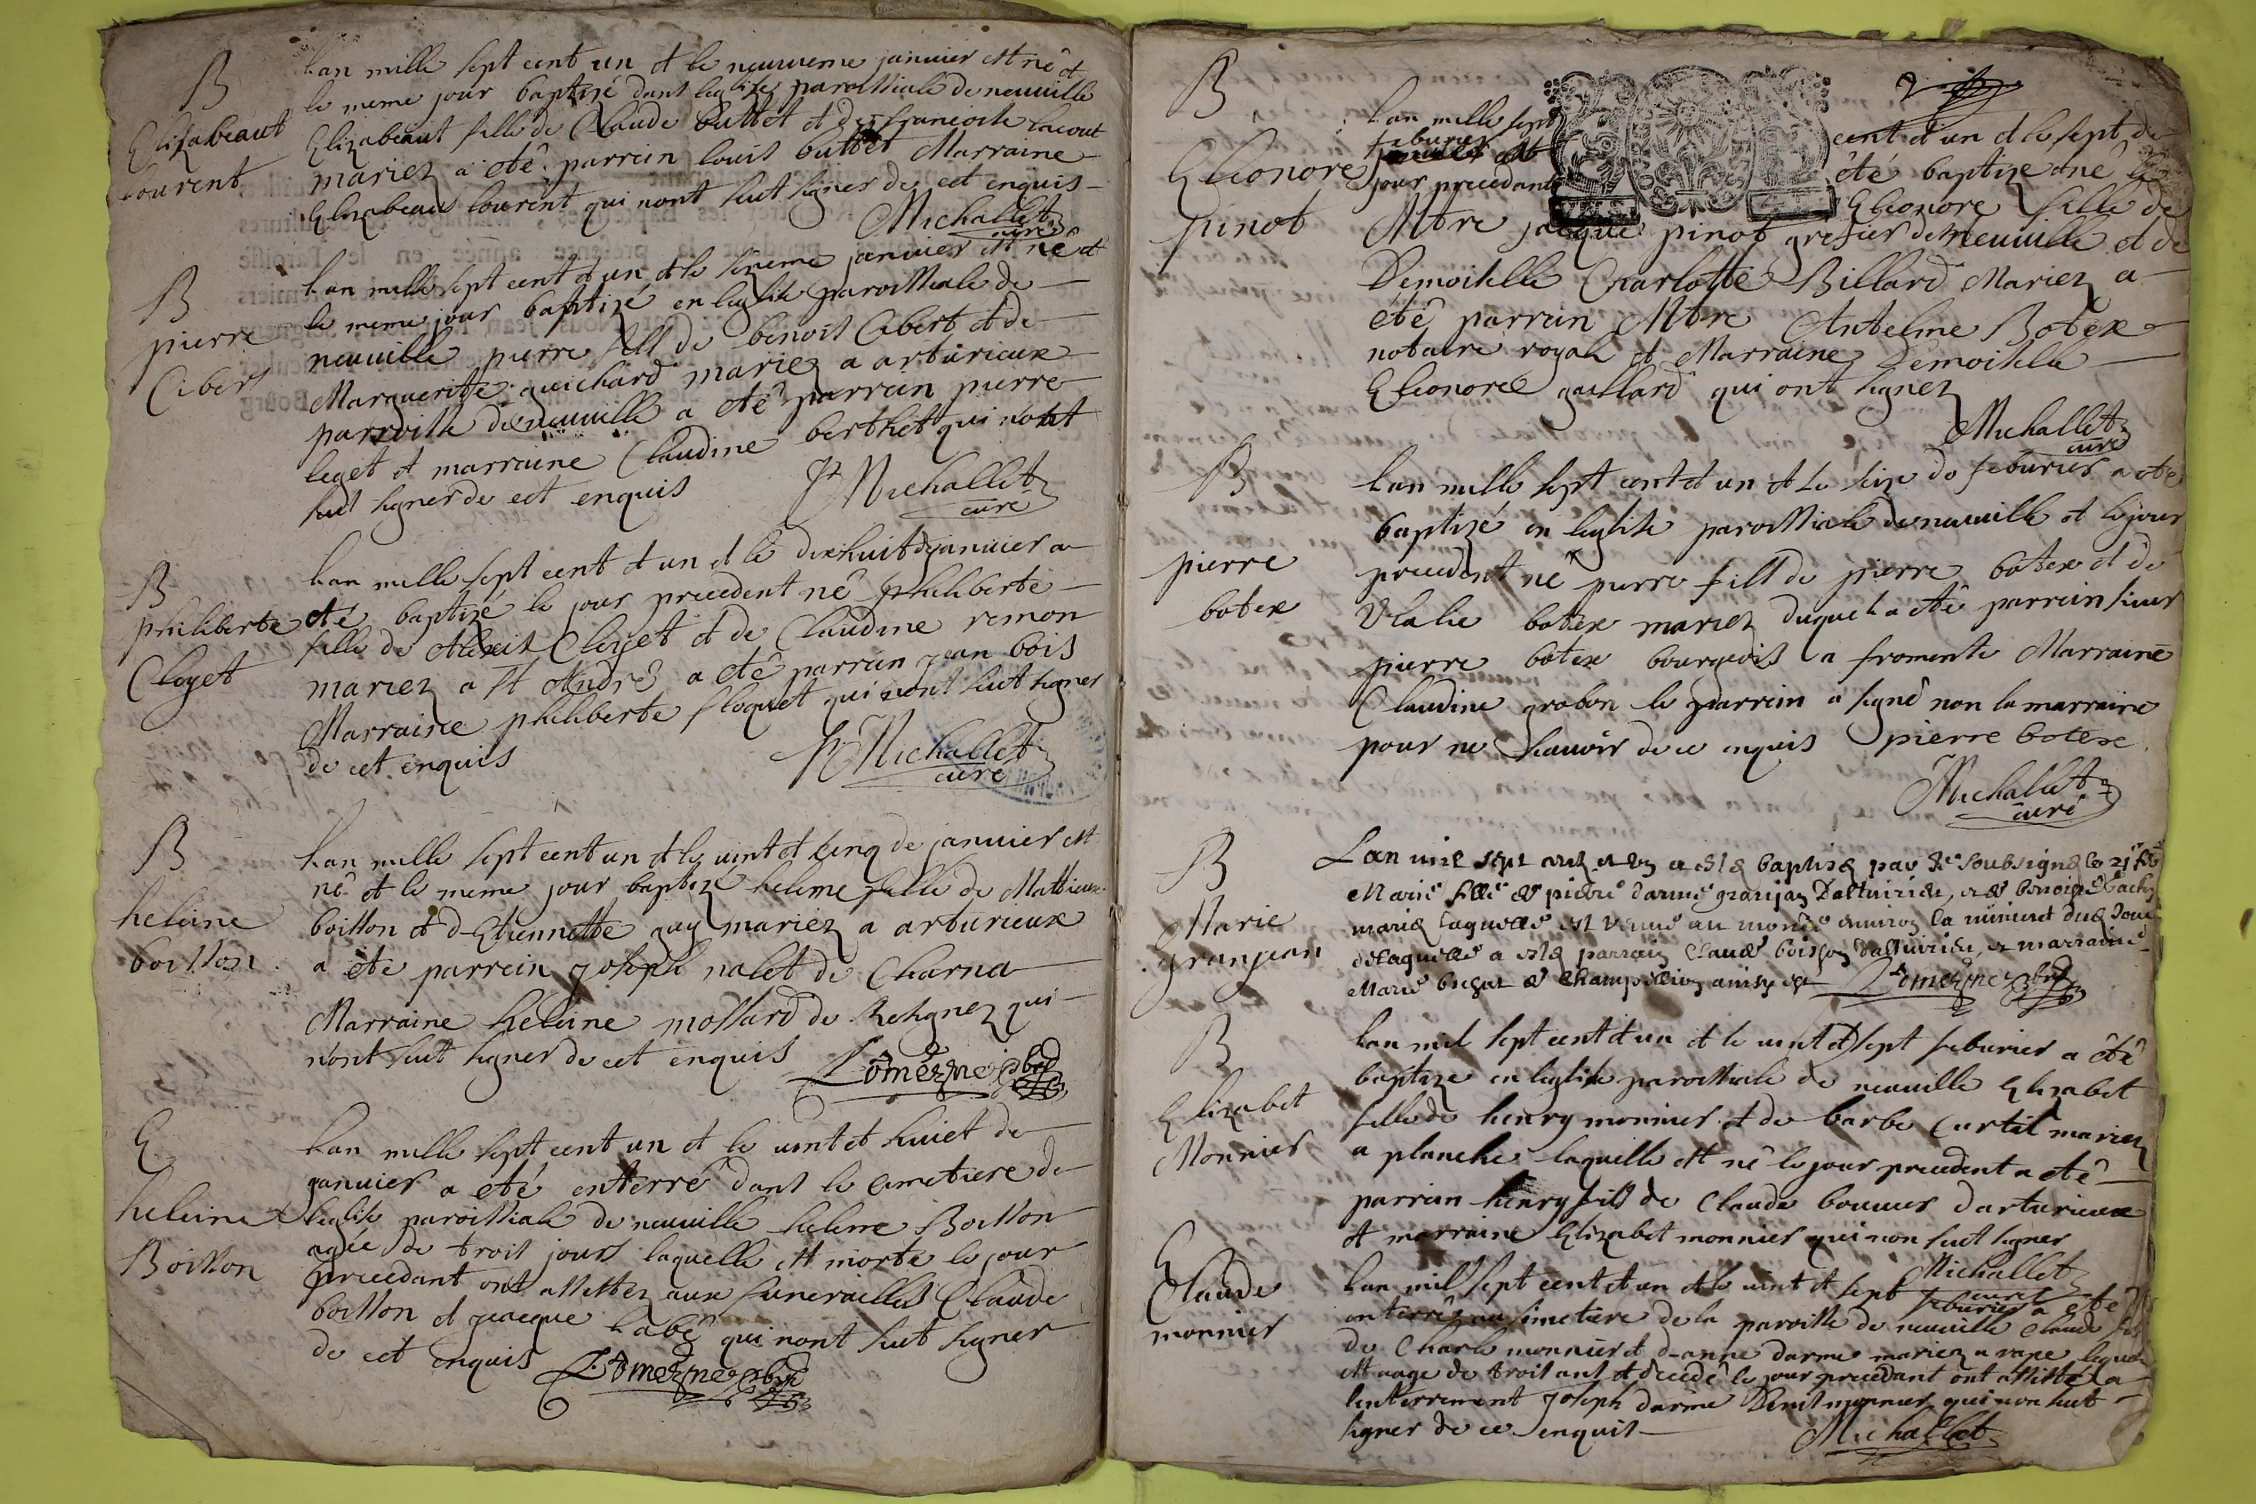 B
Elizabeaut
lourent
lan mille sept cent un et le neuuieme januier est né et
le meme jour baptizé dans leglise paroissiale de neuuille
Elizabeaut fille de Claude buttet et de francoise lacout
mariez a eté parrein louis buttet Marraine
Elizabeaus lourent qui nont sçut signer de cet enquis
Michallet
curé
B
pierre
Cibert
lan mille sept cent et un et le januier est né et
le meme jour baptizé en leglise paroissiale de
neuuille pierre fils de benoist Cibert et de
Margueritte guichard mariez a arturieux
parroisse de neuuille a eté parrein pierre
leget et marraine Claudine berthet qui nont
sçut signer de cet enquis
Michallet
curé
B
philiberte
Cloyet
lan mille sept cent et un et le dixhuit de januier a
eté baptizé le jour precedent né philiberte
fille de Alexis Cloyet et de Claudine remon
mariez a st André a eté parrein jean bois
Marraine philiberte floquet qui nont sçut signer
de cet enquis
Michallet
curé
B
heleine
boisson
lan mille sept cent un et le uint et cinq de januier est
né et le meme jour baptizé heleine fille de Mathieu
boisson et d Etiennette guy mariez a arturieux
a eté parrein joseph nalet de Charna
Marraine heleine mossard de Resignez qui
n'ont sçut signer de cet enquis
E
heleine
Boisson
lan mille sept cent un et le uint et huict de
januier a eté enterré dans le cimetiere de
leglise paroissiale de neuuille heleine Boisson
agée de trois jours laquelle est morte le jour
precedant ont assistez aux funerailles Claude
boisson et jacque labé qui nont sçut signer
de cet enquis
2
B
Eleonore
pinot
lan mille sept cent et un et le sept de
feburier est été baptize et né le
jour precedant Eleonore fille de
Mtre jacque pinot grefier de neuuille et de
Demoiselle Charlotte Billard Mariez a
été parrein Mtre Antelme Botex
notaire royal et Marraine Demoiselle
Eleonore gaillard qui ont signez
Michallet
curé
B
pierre
botex
lan mille sept cent et un et le seize de feburier a eté
baptizé en leglise paroissiale de neuuille et le jour
precedent né pierre fils de pierre botex et de
Vlalie botex mariez duquel a eté parrein sieur
pierre botex bourgeois a fromente Marraine
Claudine grobon le parrein a signé non la marraine
pour ne scauoir de ce enquis pierre botex
Michallet
curé
B
Marie
granjean
Lan mil sept cent et vn a esté baptisé par Je soubsigné le 21e
Marie fille de pierre darme granjan Dalturieu, et de benoite
mariés laquelle est venue au monde enuiron la minuict
de laquelle a esté parrain Claude boisson dalturieu, et marraine
Marie
B
Elizabet
Monnier
lan mil sept cent et un et le uint et sept feburier a été
baptize en leglise paroissiale de neuuille Elizabet
fille de henry monnier et de barbe Curtil mariez
a planche laquelle est né le jour precedent a eté
parrein henry fils de Claude bouuier darturieux
et marraine Elizabet monnier qui non sçut signer
Michallet
curé
E
Claude
monnier
lan mil sept cent et un et le uint et sept feburier a eté
enterré au simetiere de la paroisse de neuuille Claude fils
de Charle monnier et d anne darme mariez a lequel
est aage de trois ans et decedé le jour precedant ont assisté a
lenterrement joseph darme Denis monnier qui non sçut
signer de ce enquis
Michallet